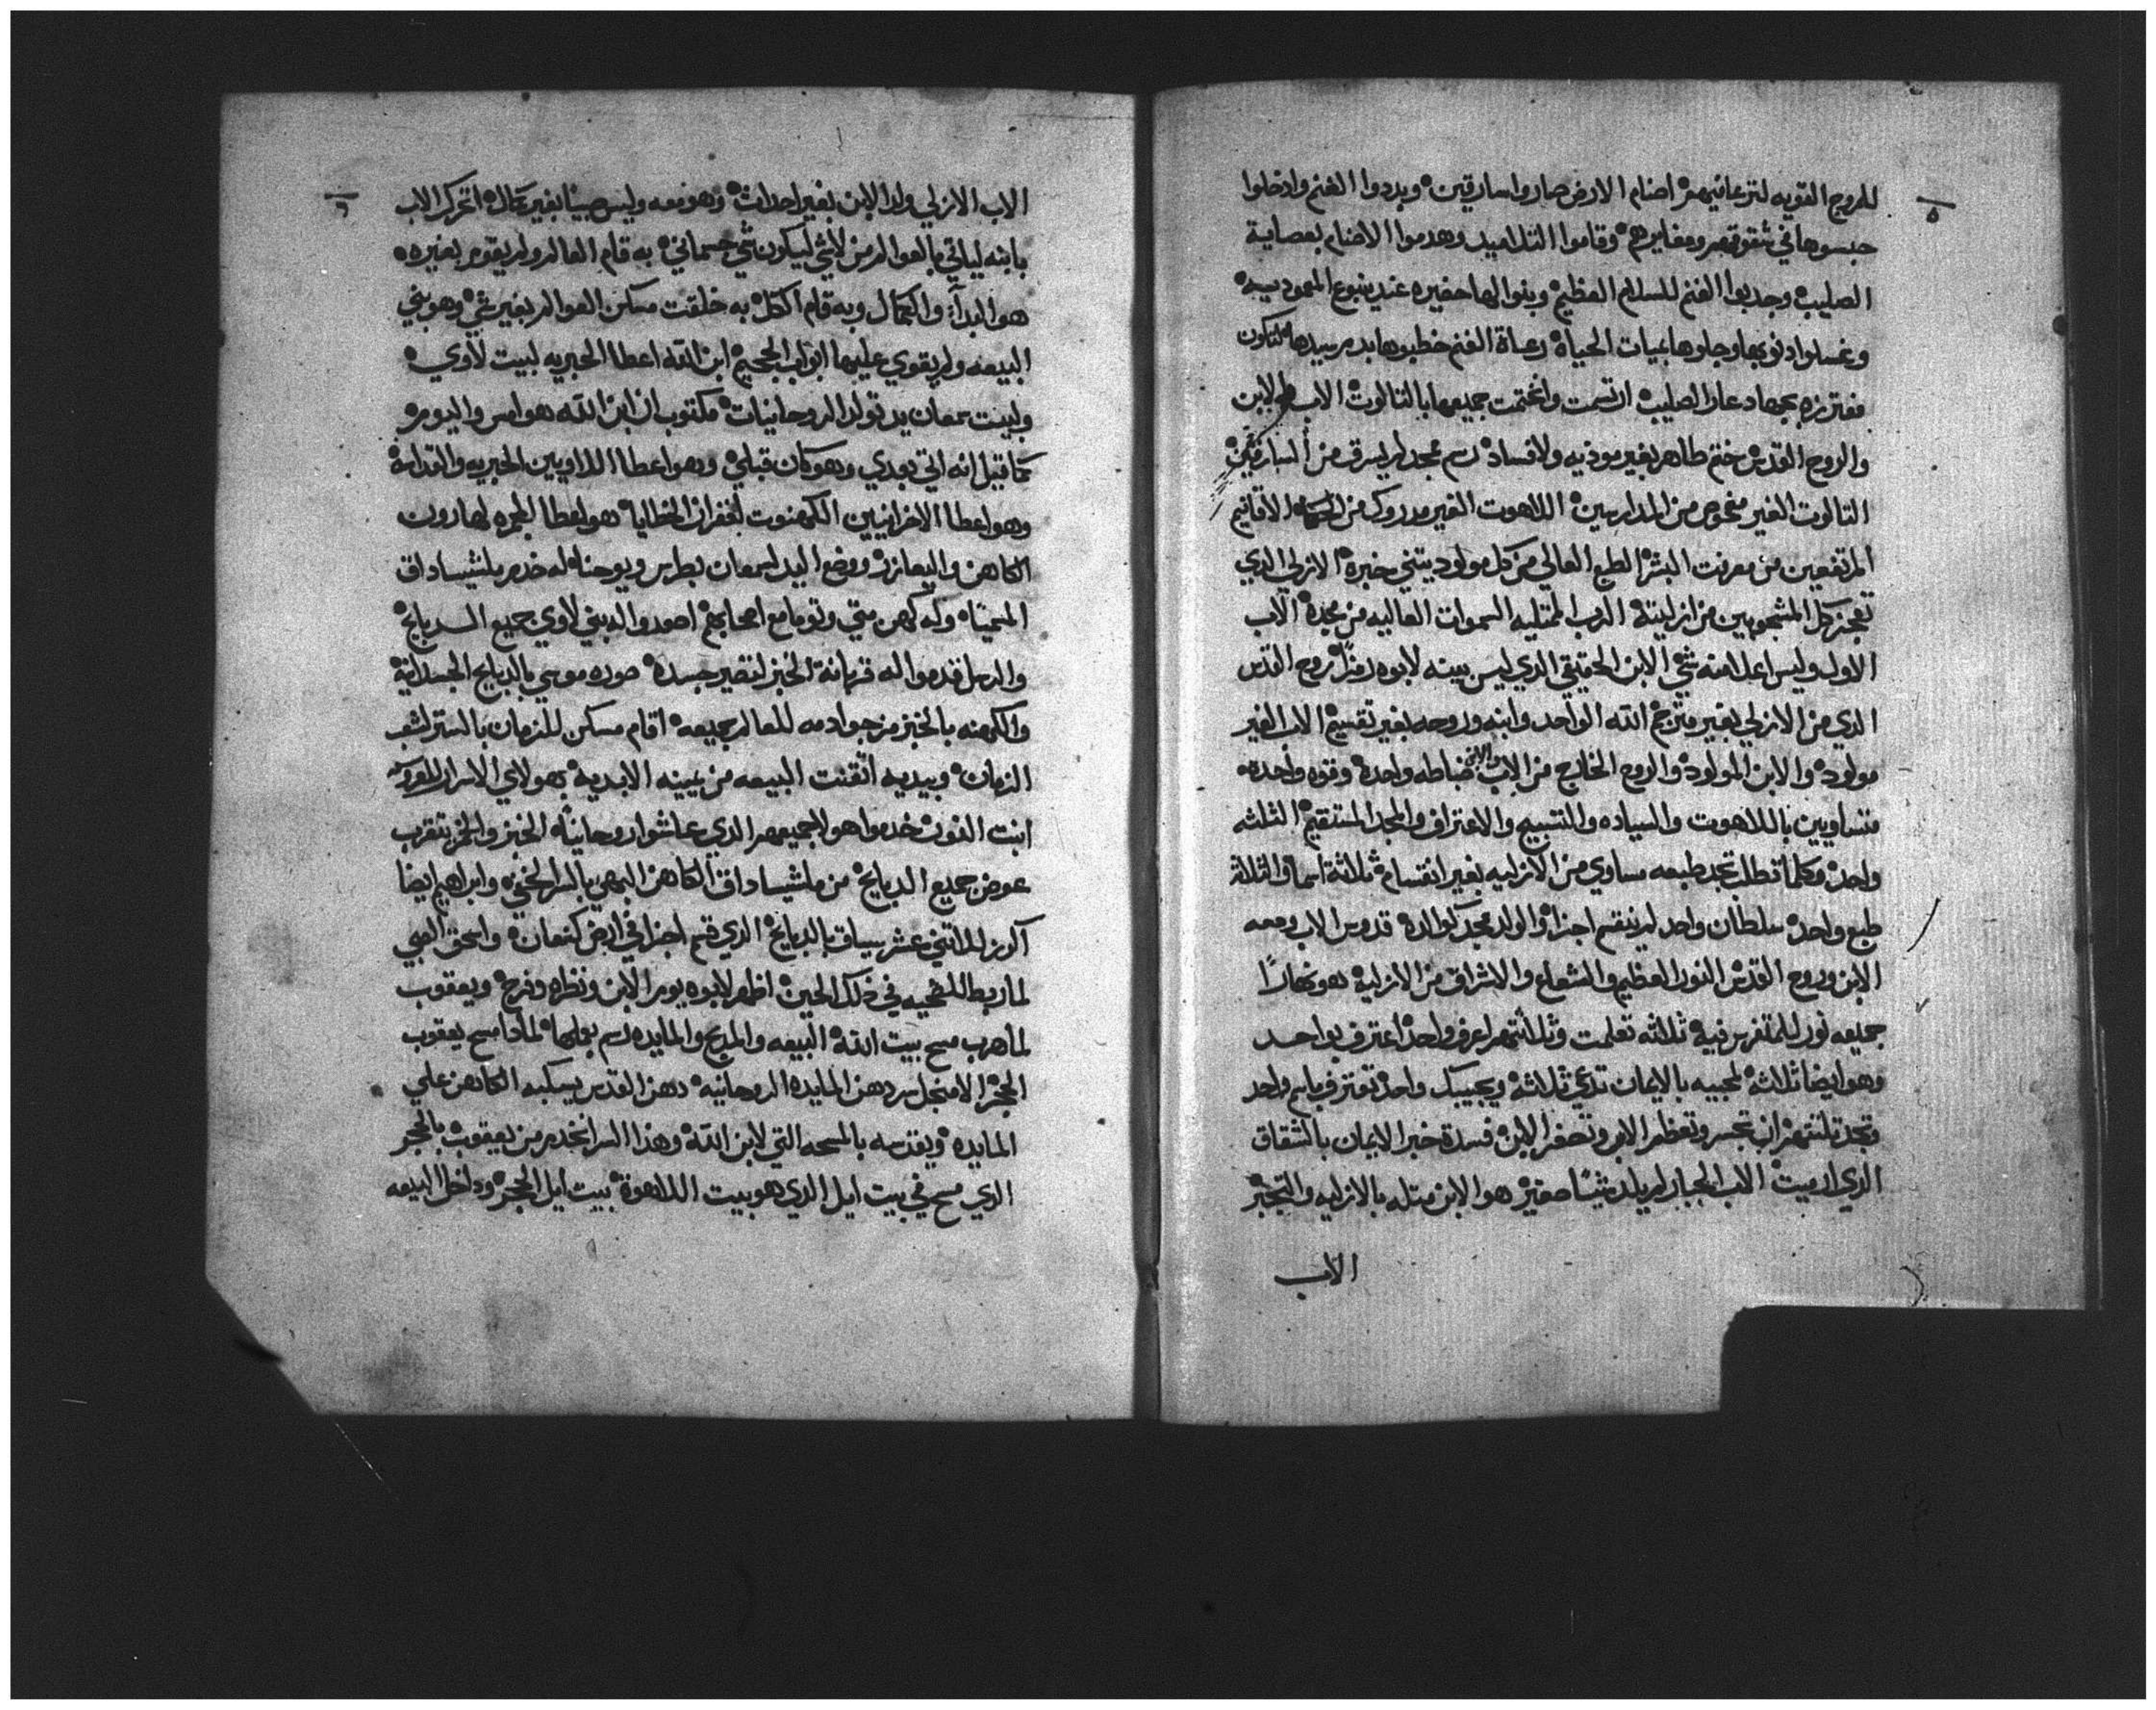 ٥
للمروج القويه لترعا فيهم اصنام الارض صاروا سارقين وبددوا الغنم وادخلوا
حبسوها في شقوقهم ومغايرهم وقاموا التلاميد وهدموا الاصنام بعصاية
الصليب وجدبوا الغنم للسلام العظيم وبنوا لها حضيره عند ينبوع المعموديه
وغسلوا دنوبها وجلوها بميات الحياه رعاة الغنم خطبوها بدم سيدها لتكون
بجهاد عار الصليب ارتسمت واختمت جميعها بالتالوت الاب والابن
والروح القدس ختم طاهر بغير موديه ولا فساد رسم مجد لم يسرق من السارقين
التالوت الغير مفحوص من المدارسين اللاهوت الغير مدروك من الاقانيم
المرتفعين من معرفت البشر الطبع العالي من كل مولود ينبي خبره الازلي الدي
تعجز كل المشجوبين من ازليته الرب الممتليه السموات العاليه من مجده الاب
الاول وليس اعلا منه شي الابن الحقيقي الدي ليس بينه لابوه زمنًا روح القدس
الدي من الازلي بغير مترجح الله الواحد وابنه وروحه بغير تقسيم الاب الغير
مولود والابن المولود والروح الخارج من الاب والابن ضباطه واحده وقوه واحده
متساويين باللاهوت والسياده والتسبيح والاعتراف والمجد المستقيم الثلثه
واحد وكلما تطلب تجد طبعه مساوي من الازليه بغير انقسام ثلاثة اسما والثلاثه
طبع واحد سلطان واحد لم ينقسم اجزاه والولد مجد كوالده قدوس الاب ومعه
الابن وروح القدس النور العظيم والشعاع والاشراق من الازليه هو نهارًا
جميعه نور للمتفرس فيه ثلاثه تعلمت وثلاثتهم اعرف واحد اعترف بواحد
وهو ايضا ثلاثه لمجيبه بالايمان تدعي ثلاثه ويجيبك واحد تعترف باسم واحد
وتجد تلتتهم ان تجسر وتعظم الاب وتصغر الابن فسدة خبر الايمان بالشقاق
الدي ارميت الاب الجبار لم يلد شيئًا صغير هو الابن متله بالازليه والتجبر
الاب
٦
الاب الازلي ولد الابن بغير احداث وهو معه وليس صبينا بغير كمال اتحرك الاب
بابنه لياتي بالعوالم من لاشي ليكون شي جسماني به قام العالم ولم يقوم بغيره
هو البدأ والكمال وبه قام الكل به خلقت مسكن العوالم بغير شي وهو بني
البيعه ولم يقوي عليها ابواب الجحيم ابن الله اعطا الحبريه لبيت لاوي
ولبيت سمعان يد تولد الروحانيات مكتوب ان ابن الله هو امس واليوم
كما قيل انه اتي بعدي وهو كان قبلي وهو اعطا اللاويين الحبريه والقداسه
وهو اعطا الاخرانيين الكهنوت لغفران الخطايا هو اعطا الجمره لهارون
الكاهن واليعازر ووضع اليد لسمعان بطرس ويوحنا له خدم ملشيساداق
وله كهن متي وتوما مع اصحابهم اصعدوا له بني لاوي جميع الدبايح
والرسل قدموا له قربانة الخبز لتصير جسده صوره موسي بالدبايح الجسدانيه
والكهنه بالخبز مزجوا دمه للعالم جميعه اقام مسكن للزمان بالستر لشعب
الزمان وبيديه اتقنت البيعه من يمينه الابديه بهولاي الاسرار
ابنت النور خدموا هولا جميعهم الدي عاشوا روحانياه الخبز والخمر يتقرب
عوض جميع الدبايح من ملشيساداق الكاهن البهي بالسر الخفي وابراهيم ايضا
اكرز للاتني عشر سياق بالدبايح الدي قسم اجزا في ارض كنعان واسحق الصبي
لما ربط للضحيه في ذلك الحين اظهر لابوه يوم الابن ونظره وفرح ويعقوب
لما هرب مسح بيت الله البيعه والمدبح والمايده رسم بعملها لمادا مسح يعقوب
الحجر الا من اجل سر دهن المايده الروحانيه دهن القدس يسكبه الكاهن علي
المايده ويقدسه بالمسحه التي لابن الله وهذا السر انحدر من يعقوب بالحجر
الدي مسح في بيت ايل الدي هو بيت اللاهوة بيت ايل الحجر وداخل البيعه